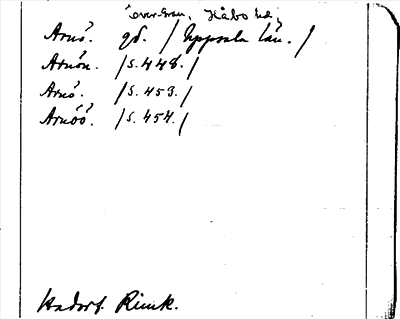 Övergran, Håbo hd,
Arnö. gd. / Uppsala län. /
Arnön. /S. 448. /
Arnö. /S. 453. /
Arnöö. /S. 454. /
Hadorf. Rimk.